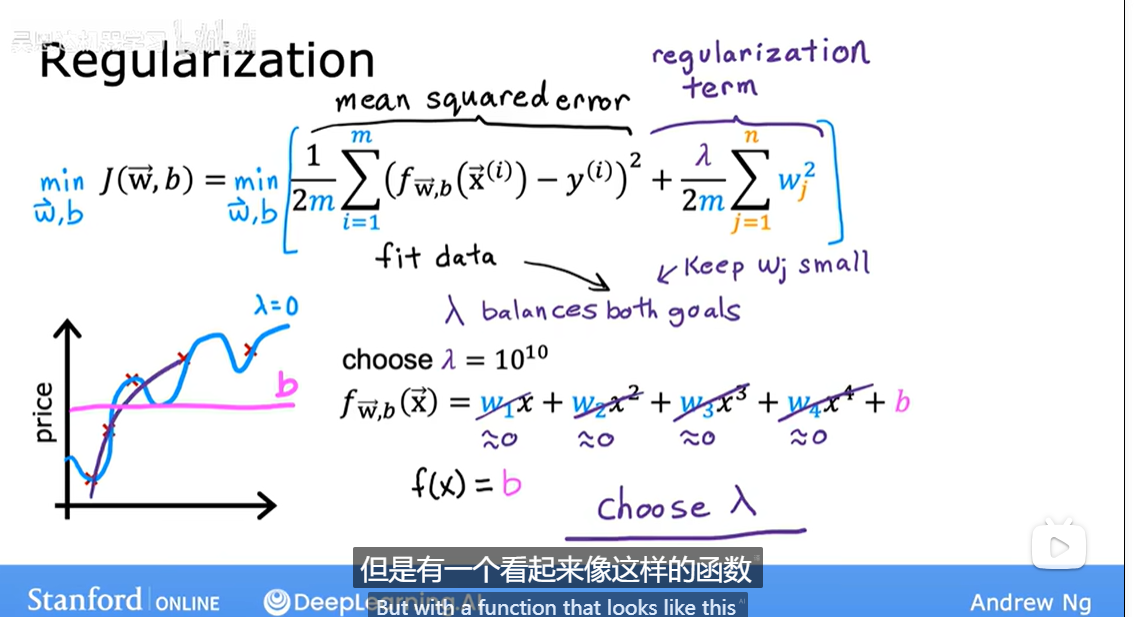 Regularization
regularization term
mean squared error
min w⃗,b J(w⃗,b) = min w⃗,b [ 1/2m ∑ i=1 m (f w⃗,b(x⃗⁽ⁱ⁾) − y⁽ⁱ⁾)² + λ/2m ∑ j=1 n wⱼ² ]
fit data
Keep wj small
λ balances both goals
λ=0
choose λ = 10¹⁰
b
f w⃗,b(x⃗) = w₁x + w₂x² + w₃x³ + w₄x⁴ + b
≈0 ≈0 ≈0 ≈0
price
f(x) = b
choose λ
但是有一个看起来像这样的函数
But with a function that looks like this
Stanford ONLINE
DeepLearning.AI
Andrew Ng